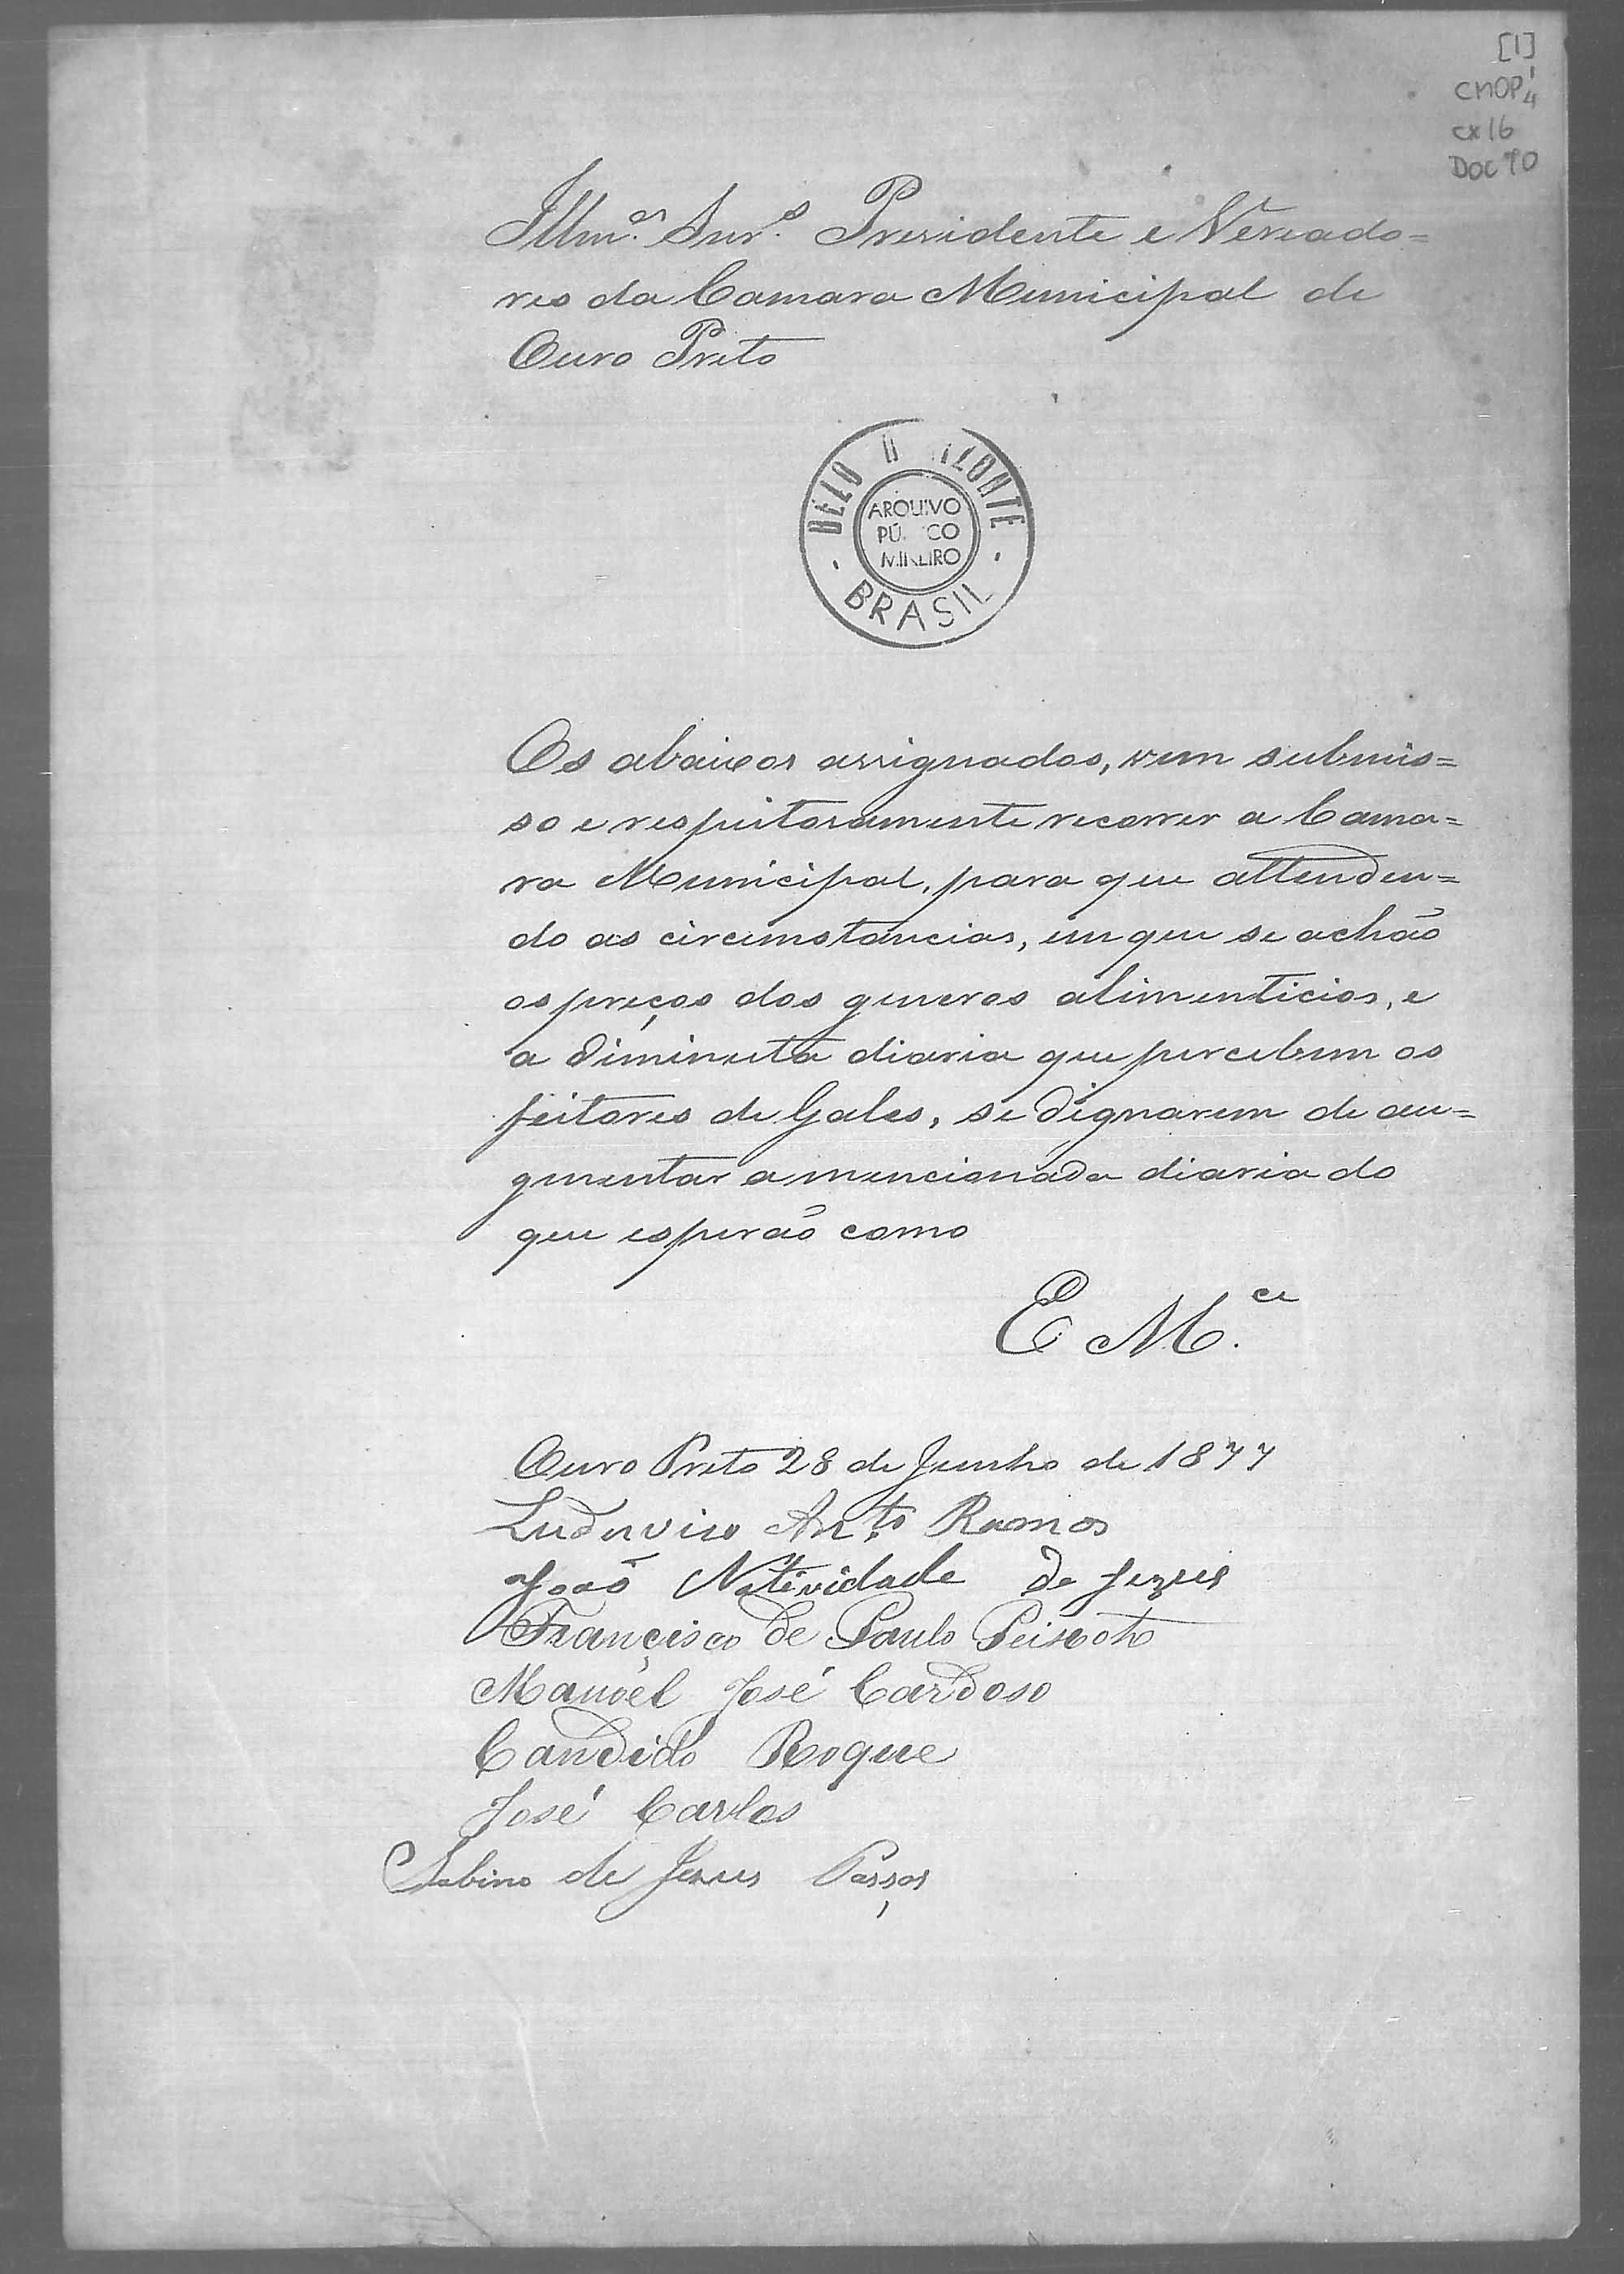 [1]
CMOP 1/4
cx 16
DOC 70
Illm.os Snr.s Presidente e Vereado=
res da Camara Municipal de
Ouro Preto
BELO H IZONTE
ARQUIVO
PÚ CO
MINEIRO
BRASIL
Os abaixos assignados, vem submis=
so e respeitosamente recorrer a Cama=
ra Municipal, para que attenden=
do as circumstancias, em que se achão
os preços dos generos alimenticios, e
a diminuta diaria que percebem os
feitores de Gales, se dignarem de au=
gmentar a mencionada diaria do
que esperão como
E M.ce
Ouro Preto 28 de Junho de 1877
Ludovico Ant.to Ramos
João Natividade de Jezus
Francisco de Paulo Peixoto
Manoel José Cardoso
Candido Roque
José Carlos
Sabino de Jesus Passos